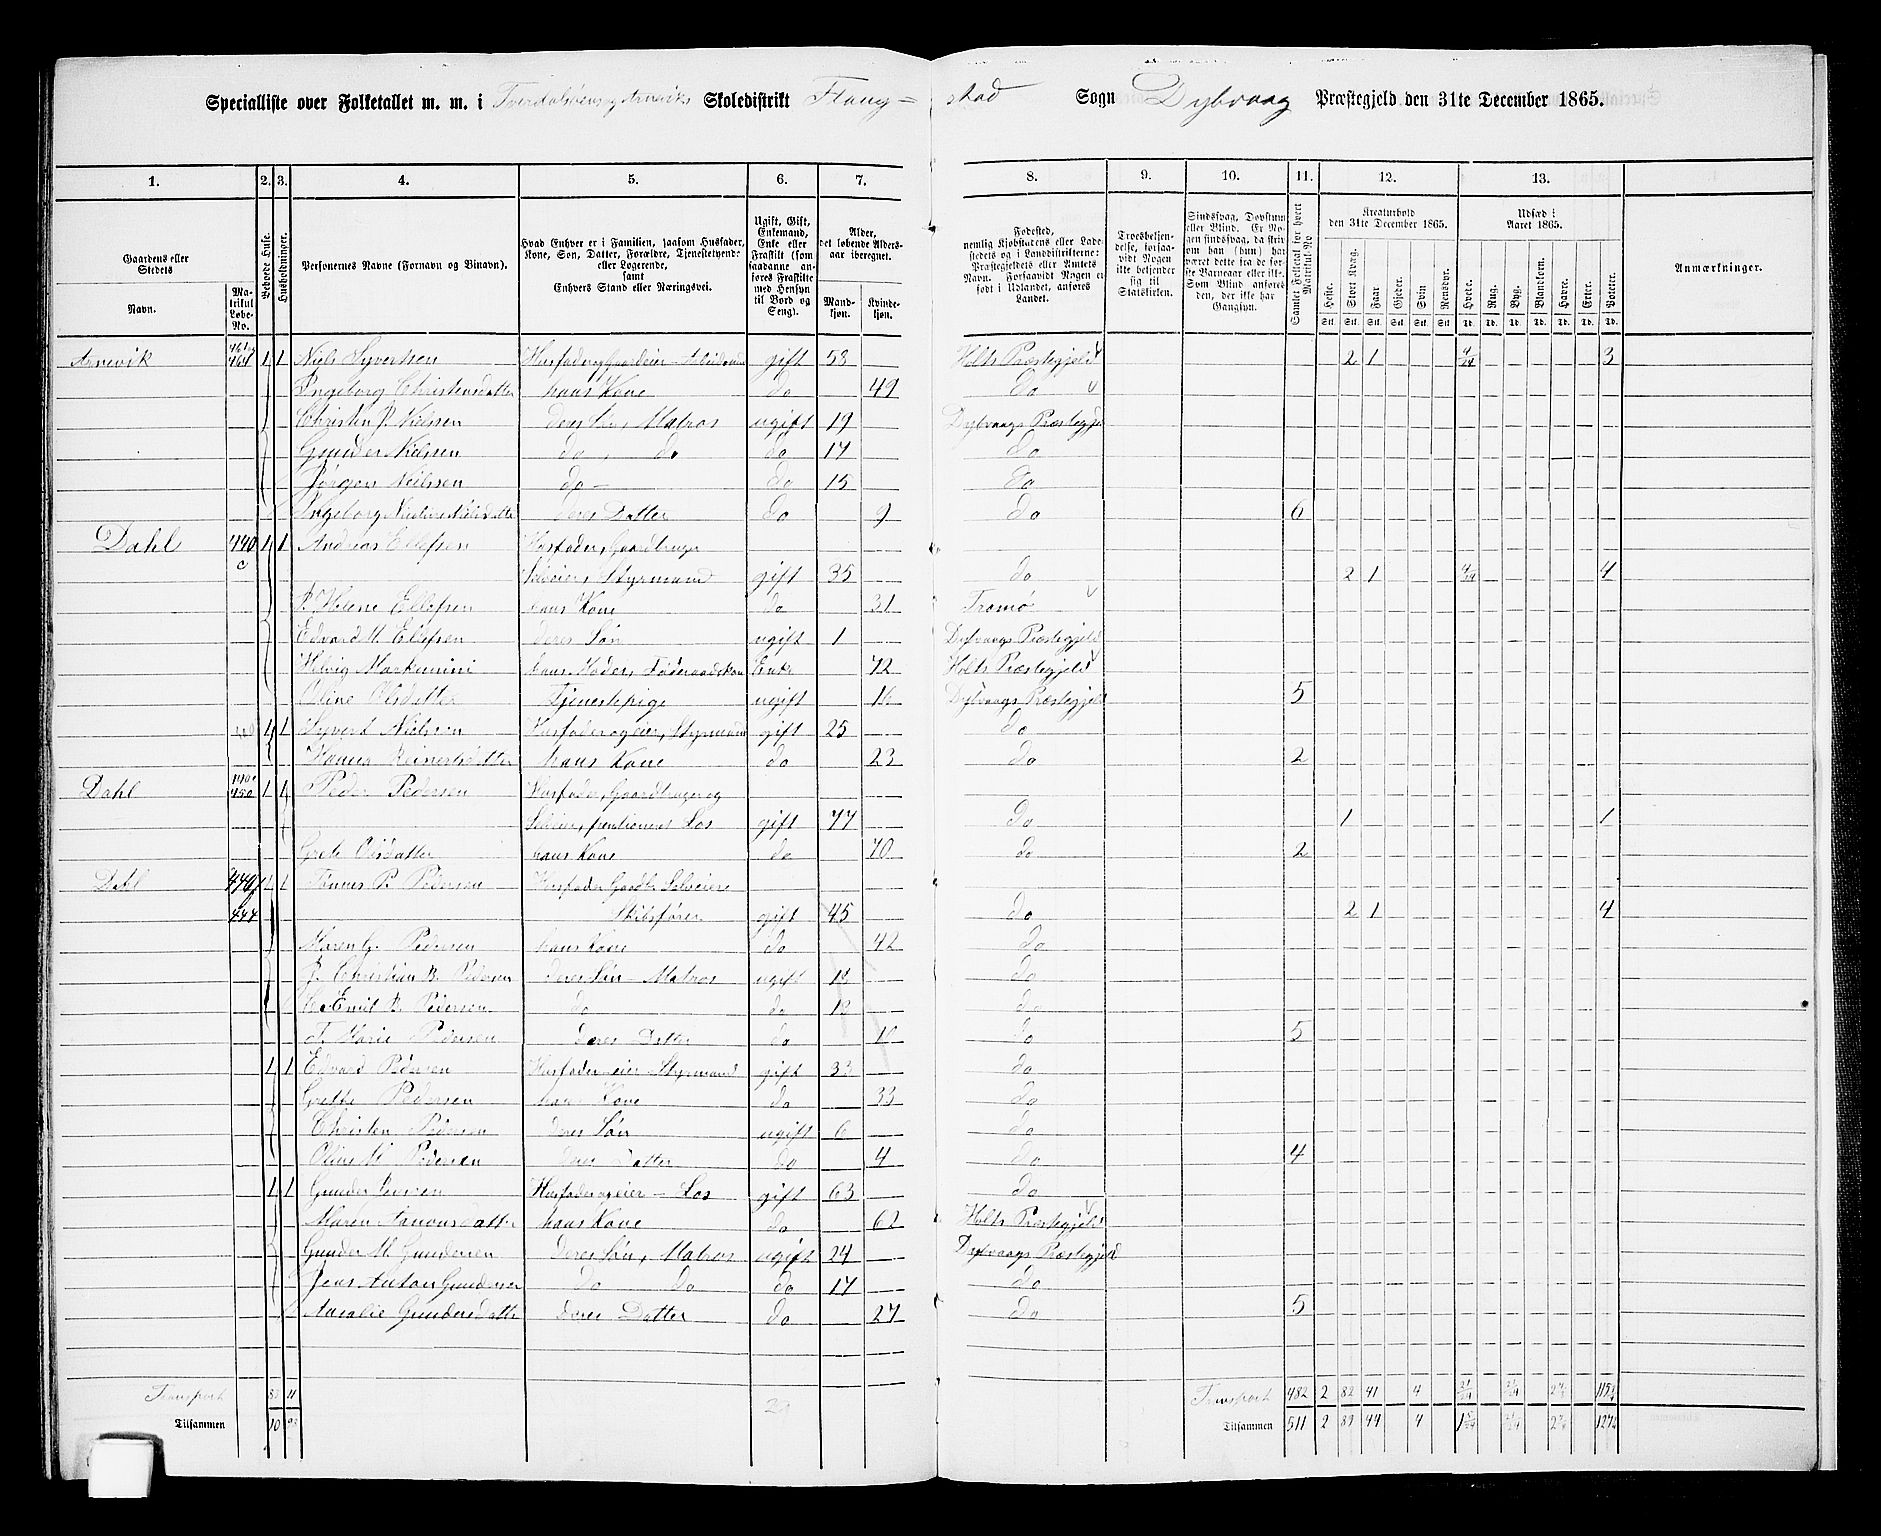 Specialliste over Folketallet m. m. i Tverdalsøens og Arneviks Skoledistrikt Flang=stad Sogn Dybvaag Præstegjeld den 31te December 1865.
1. 2. 3. 4. 5. 6. 7. 8. 9. 10. 11. 12. 13.
Gaardens eller Stedets
Navn.
Matrikul Løbe-No.
Beboede Huse.
Husholdninger.
Personernes Navne (Fornavn og Binavn).
Hvad Enhver er i Familien, saasom Husfader, Kone, Søn, Datter, Forældre, Tjenestetyende eller Logerende, samt Enhvers Stand eller Næringsvei.
Ugift, Gift, Enkemand, Enke eller Fraskilt (som saadanne anføres Fraskilte med Hensyn til Bord og Seng).
Alder, det løbende Aldersaar iberegnet.
Mandkjøn. Kvindekjøn.
Fødested, nemlig Kjøbstadens eller Ladestedets og i Landdistrikterne: Præstegjeldets eller Amtets Navn. Forsaavidt Nogen er født i Udlandet, anføres Landet.
Troesbekjendelse, forsaavidt Nogen ikke bekjender sig til Statskirken.
Sindssvag, Døvstum eller Blind.
Samlet Folketal for hvert Matrikul-No
Kreaturhold den 31te December 1865.
Heste. Stort Kvæg. Faar Gjeder. Svin Rensdyr.
Udsæd i Aaret 1865.
Hvede. Rug. Byg. Blandkorn. Havre. Erter. Poteter.
Anmærkninger.
Arnevik 461 og 464 1 1 Niels Syvertsen Husfader og Gaardeier - Arbeidsmand gift 53 Holts Præstegjeld 2 1 3
Ingeborg Christensdatter hans Kone do 49 Do
Christen P. Nielsen deres Søn Matros ugift 19 Dybvaags Præstegjeld
Gunder Nielsen do do do 17 Do
Jørgen Nielsen do - do 15 Do
Ingeborg Nielsdatter deres Datter do 9 do 6
Dahl 440 c 1 1 Andreas Ellefsen Husfader, Gaardbruger
Selveier, Styrmand gift 35 do 2 1 4
P. Helene Ellefsen hans Kone do 31 Tromø
Edvard M. Ellefsen deres Søn ugift 1 Dybvaags Præstegjeld
Helvig hans Moder, Føderaadskone Enke 72 Holts Præstegjeld
Oline Olsdatter Tjenestepige ugift 16 Dybvaags Præstegjeld 5
1 1 Syvert Nielsen Husfader og eier, Styrmand gift 25 do
Hanna Reinertsdatter hans Kone do 23 do 2
Dahl 450 1 1 Peder Pedersen Husfader, Gaardbruger og
Selveier, pentioneret Los gift 77 Do 1 1
Grete Olsdatter hans Kone do 70 do 2
Dahl 440 1 1 Tønnes P. Pedersen Husfader Gaardb. Selveier
444 Skibsfører gift 45 do 2 1 4
Maren G. Pedersen hans Kone do 42 do
P. Christian B. Pedersen deres Søn - Matros ugift 18 do
Emil B. Pedersen do do do
T. Marie Pedersen Deres Datter do 10 do 5
1 1 Edvard Pedersen Husfader eier Styrmand gift 33 do
Grethe Pedersen hans Kone do 33 do
Christen Pedersen deres Søn ugift 6 do
Oline M Pedersen deres Datter do 4 do 4
1 1 Gunder Husfader og eier - Los gift 63 do
Maren hans Kone do 62 Holts Præstegjeld
Gunder M. Gundersen Deres Søn, Matros ugift 24 Dybvaags Præstegjeld
Jens Anton Gundersen Do Do do 17 do
Amalie Gundersdatter Deres Datter do 27 do 5
Transport 11 Transport 482 2 82 41 4
Tilsammen 10 29 Tilsammen 511 2 89 44 4